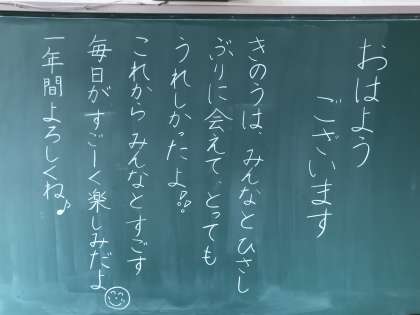 おはよう
ございます
きのうは、みんなとひさし
ぶりに会えて、とっても
うれしかったよ!!
これからみんなとすごす
毎日がすごーく楽しみだよ
一年間よろしくね♪